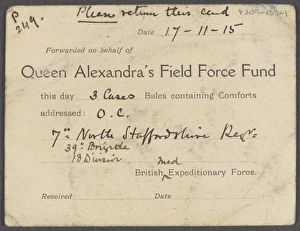 P
249.
Please return this card
8209-109-1
Date 17-11-15
Forwarded on behalf of
Queen Alexandra's Field Force Fund
this day 3 Cases Bales containing Comforts
addressed: O.C.
7th North Staffordshire Regt.
39th Brigade
13 Division
med
British Expeditionary Force.
Received Date